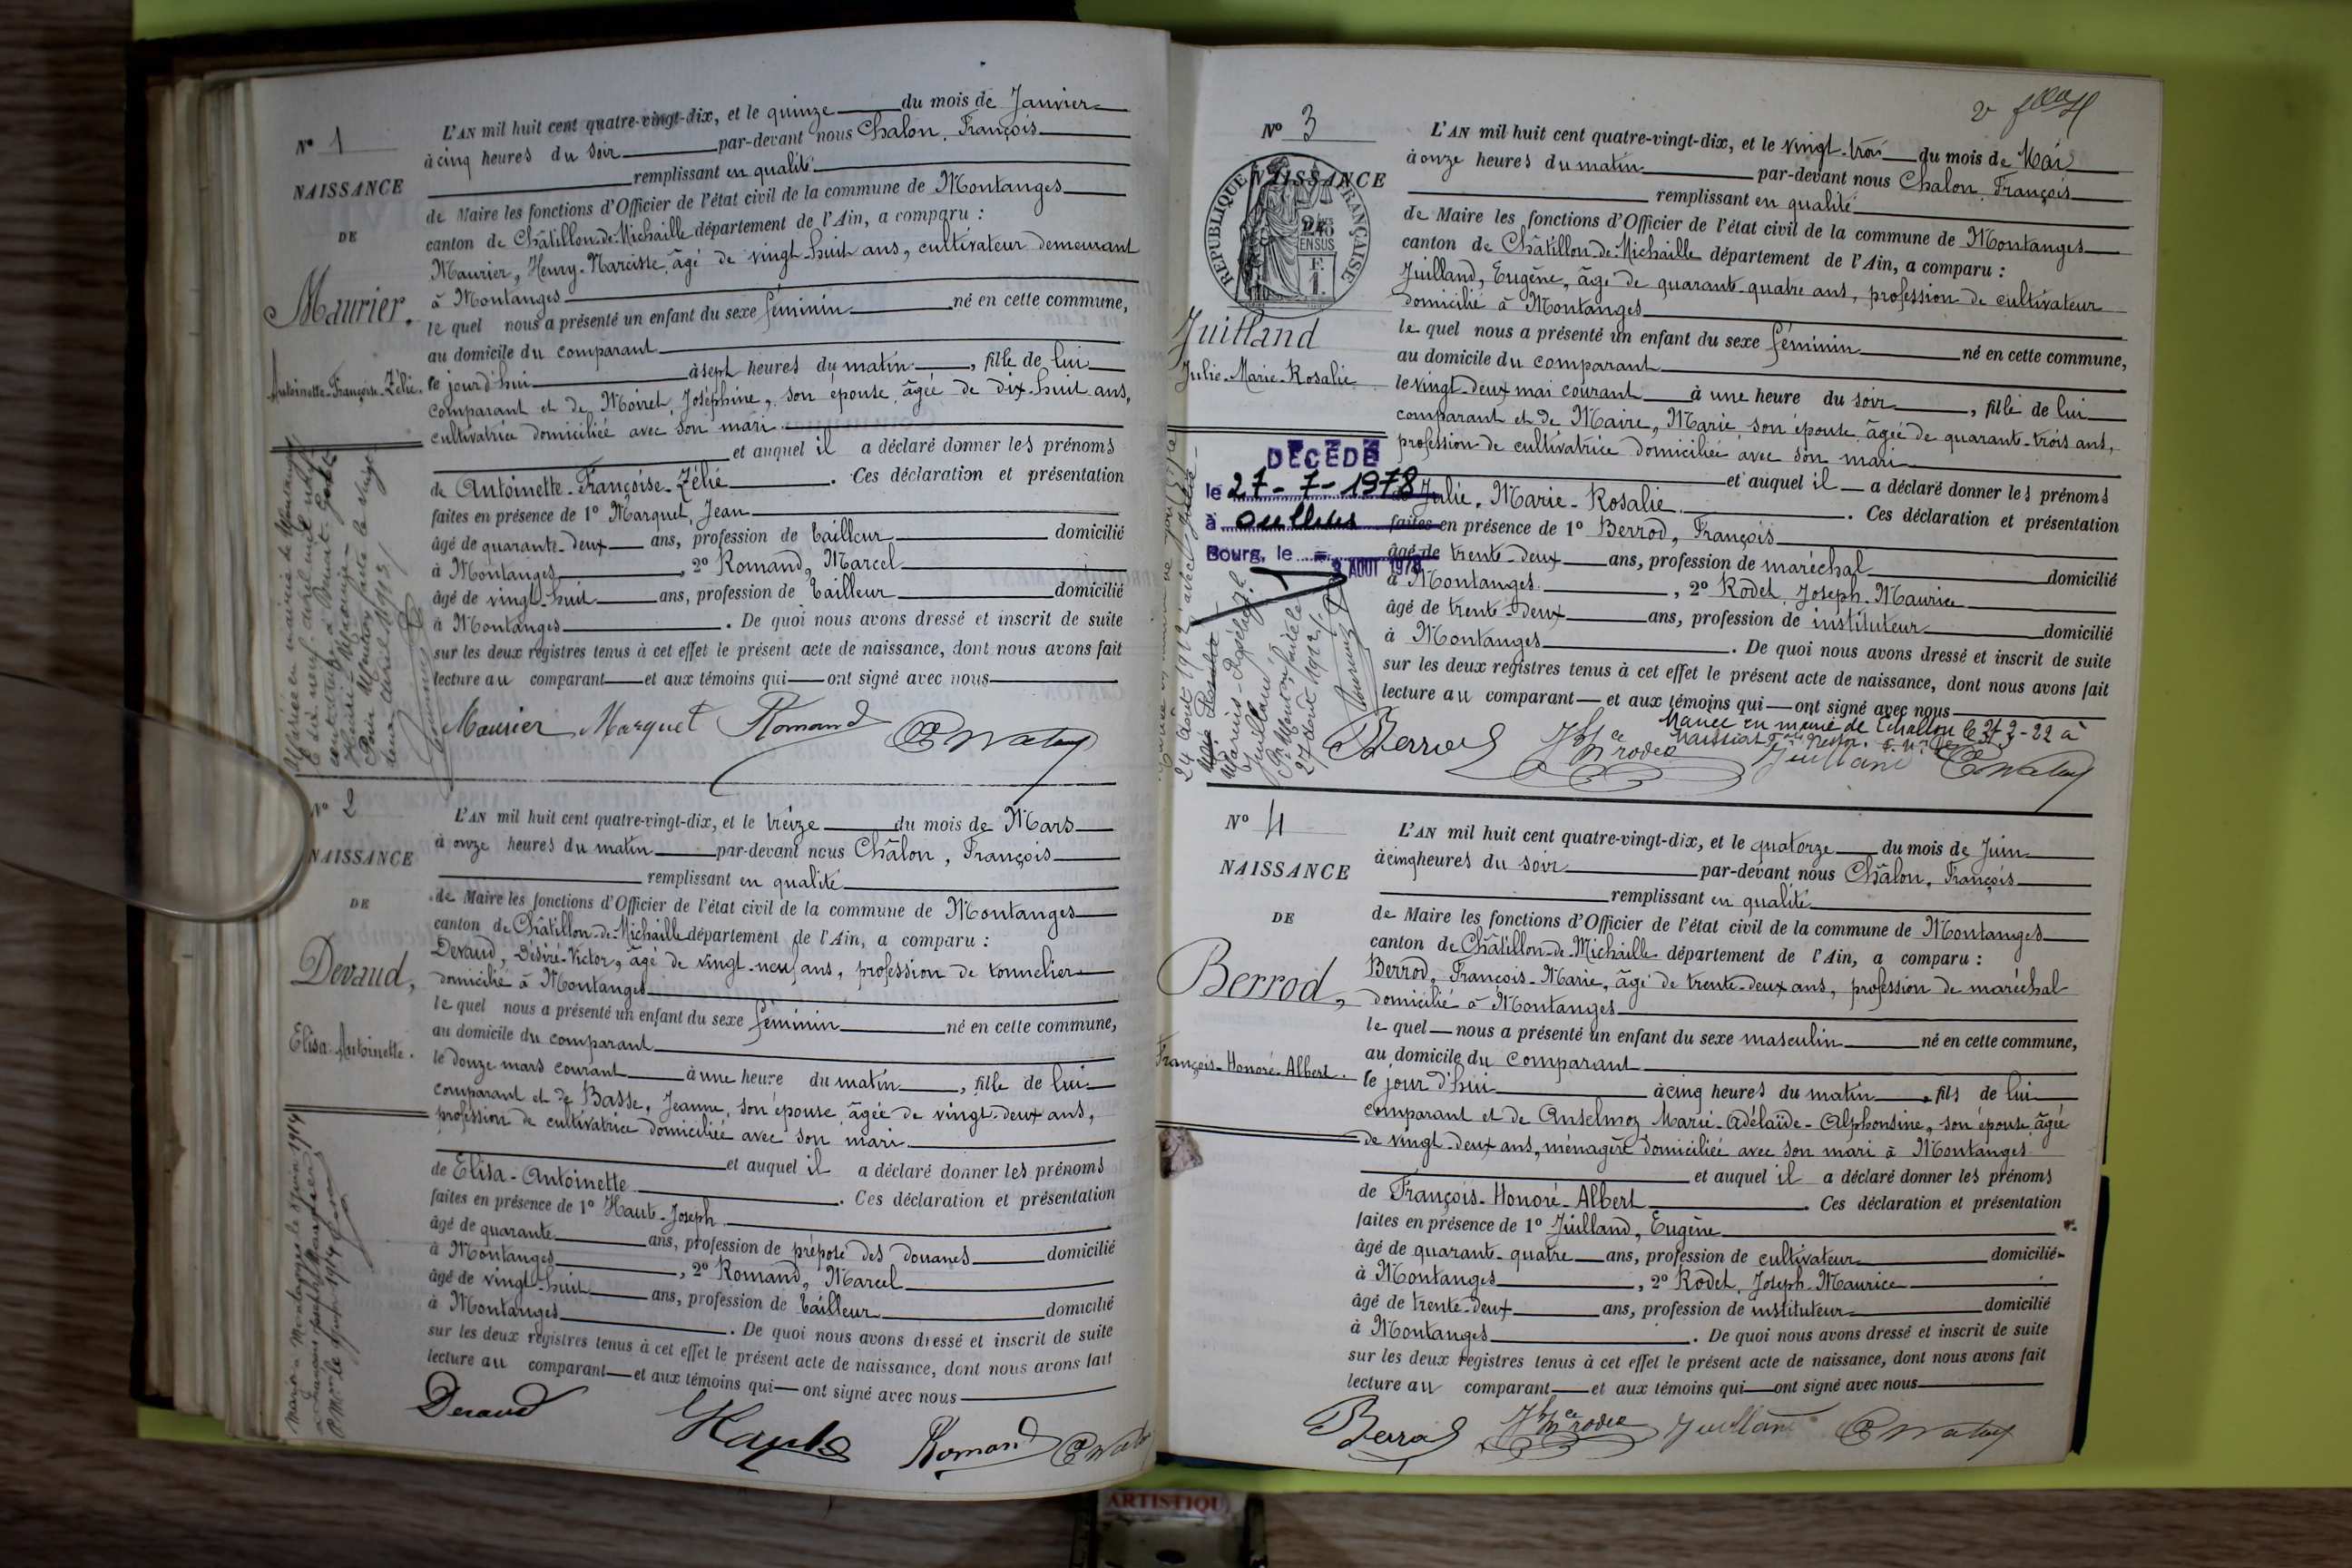 N° 1
NAISSANCE
DE
Maurier.
Antoinette-Françoise-Zélie.
L'AN mil huit cent quatre-vingt-dix, et le quinze du mois de Janvier
à cinq heures du soir par-devant nous Chalon, François
remplissant en qualité
de Maire les fonctions d'Officier de l'état civil de la commune de Montanges
canton de Châtillon-de-Michaille département de l'Ain, a comparu :
Maurier, Henry-Narcisse, âgé de vingt-huit ans, cultivateur demeurant
à Montanges
lequel nous a présenté un enfant du sexe féminin né en cette commune,
au domicile du comparant
le jourd'hui à sept heures du matin, fille de lui
comparant et de Moiret, Joséphine, son épouse, âgée de dix-huit ans,
cultivatrice domiciliée avec son mari
et auquel il a déclaré donner les prénoms
de Antoinette-Françoise-Zélie. Ces déclaration et présentation
faites en présence de 1° Marquet, Jean
âgé de quarante-deux ans, profession de tailleur domicilié
à Montanges, 2° Romand, Marcel
âgé de vingt-huit ans, profession de tailleur domicilié
à Montanges. De quoi nous avons dressé et inscrit de suite
sur les deux registres tenus à cet effet le présent acte de naissance, dont nous avons fait
lecture au comparant et aux témoins qui ont signé avec nous
Maurier Marquet Romand
N° 2
NAISSANCE
DE
Devaud,
Elisa-Antoinette.
Marié à Montanges le 8 juin 1914
L'AN mil huit cent quatre-vingt-dix, et le treize du mois de Mars
à onze heures du matin par-devant nous Châlon, François
remplissant en qualité
de Maire les fonctions d'Officier de l'état civil de la commune de Montanges
canton de Châtillon-de-Michaille département de l'Ain, a comparu :
Devaud, Désiré-Victor, âgé de vingt-neuf ans, profession de tonnelier
domicilié à Montanges
lequel nous a présenté un enfant du sexe féminin né en cette commune,
au domicile du comparant
le douze mars courant à une heure du matin, fille de lui
comparant et de Basse, Jeanne, son épouse âgée de vingt-deux ans,
profession de cultivatrice domiciliée avec son mari
et auquel il a déclaré donner les prénoms
de Elisa-Antoinette. Ces déclaration et présentation
faites en présence de 1° Haute-Joseph
âgé de quarante ans, profession de préposé des douanes domicilié
à Montanges, 2° Romand, Marcel
âgé de vingt-huit ans, profession de tailleur domicilié
à Montanges. De quoi nous avons dressé et inscrit de suite
sur les deux registres tenus à cet effet le présent acte de naissance, dont nous avons fait
lecture au comparant et aux témoins qui ont signé avec nous
Devaud Haute Romand
N° 3
NAISSANCE
RÉPUBLIQUE FRANÇAISE
Juilland
Julie-Marie-Rosalie
DÉCÉDÉ
le 27-7-1978
à Oullins
Bourg, le = 3 AOUT 1978
L'AN mil huit cent quatre-vingt-dix, et le vingt-trois du mois de Mai
à onze heures du matin par-devant nous Chalon, François
remplissant en qualité
de Maire les fonctions d'Officier de l'état civil de la commune de Montanges
canton de Châtillon-de-Michaille département de l'Ain, a comparu :
Juilland, Eugène, âgé de quarante-quatre ans, profession de cultivateur
domicilié à Montanges
lequel nous a présenté un enfant du sexe féminin né en cette commune,
au domicile du comparant
le vingt-deux mai courant à une heure du soir, fille de lui
comparant et de Maire, Marie, son épouse, âgée de quarante-trois ans,
profession de cultivatrice domiciliée avec son mari
et auquel il a déclaré donner les prénoms
de Julie-Marie-Rosalie. Ces déclaration et présentation
faites en présence de 1° Berrod, François
âgé de trente-deux ans, profession de maréchal domicilié
à Montanges, 2° Rodet, Joseph-Maurice
âgé de trente-deux ans, profession de instituteur domicilié
à Montanges. De quoi nous avons dressé et inscrit de suite
sur les deux registres tenus à cet effet le présent acte de naissance, dont nous avons fait
lecture au comparant et aux témoins qui ont signé avec nous
Berrod Juilland
N° 4
NAISSANCE
DE
Berrod,
François-Honoré-Albert.
L'AN mil huit cent quatre-vingt-dix, et le quatorze du mois de Juin
à cinq heures du soir par-devant nous Châlon, François
remplissant en qualité
de Maire les fonctions d'Officier de l'état civil de la commune de Montanges
canton de Châtillon-de-Michaille département de l'Ain, a comparu :
Berrod, François-Marie, âgé de trente-deux ans, profession de maréchal
domicilié à Montanges
lequel nous a présenté un enfant du sexe masculin né en cette commune,
au domicile du comparant
le jour d'hui à cinq heures du matin, fils de lui
comparant et de Anselmoz Marie-Adélaïde-Alphonsine, son épouse, âgée
de vingt-deux ans, ménagère domiciliée avec son mari à Montanges
et auquel il a déclaré donner les prénoms
de François-Honoré-Albert. Ces déclaration et présentation
faites en présence de 1° Juilland, Eugène
âgé de quarante-quatre ans, profession de cultivateur domicilié
à Montanges, 2° Rodet, Joseph-Maurice
âgé de trente-deux ans, profession de instituteur domicilié
à Montanges. De quoi nous avons dressé et inscrit de suite
sur les deux registres tenus à cet effet le présent acte de naissance, dont nous avons fait
lecture au comparant et aux témoins qui ont signé avec nous
Berrod Juilland
ARTISTIQU